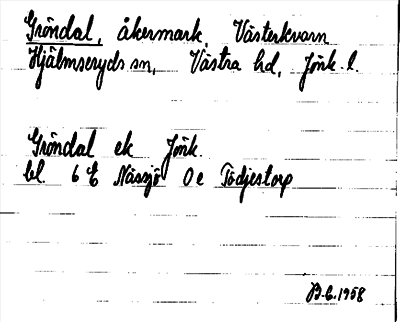 Gröndal, åkermark, Västerkvarn
Hjälmseryds sn, Västra hd, Jönk. l.
Gröndal ek Jönk.
bl. 6 E Nässjö 0 e Tödjestorp
B-C. 1958